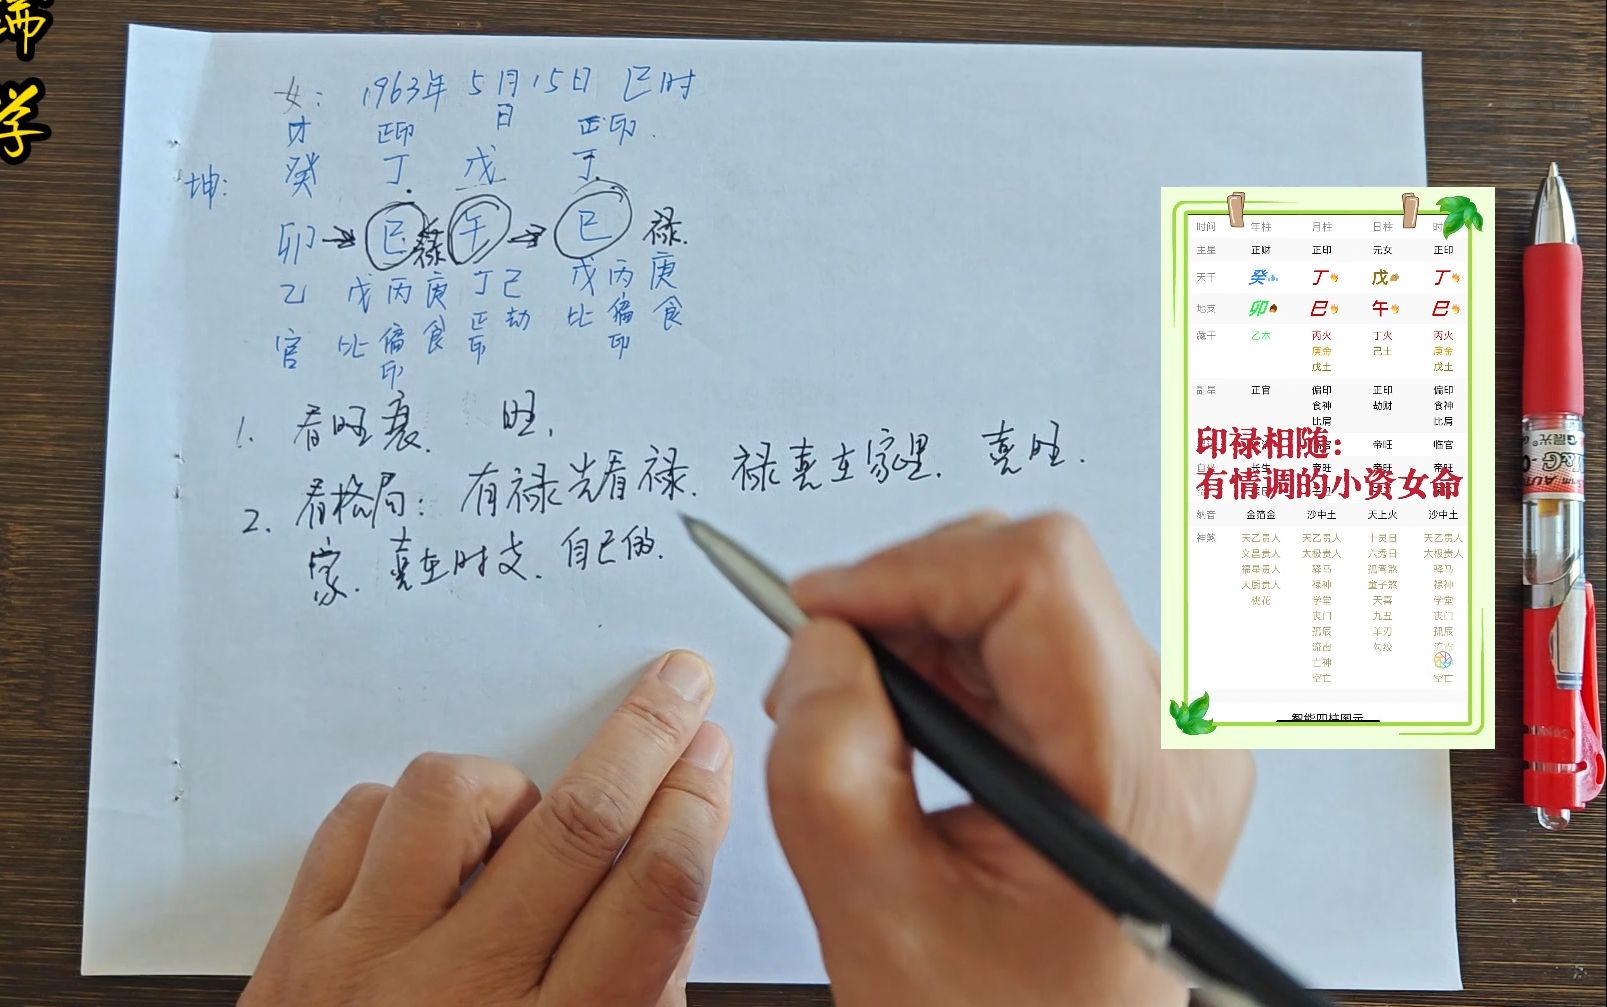 学
女： 1963年 5月15日 巳时
日
才 正印 正印.
坤: 癸 丁. 戊 丁.
卯 巳 禄 午 巳 禄.
乙 戊 丙 庚 丁 己 戊 丙 庚
官 比 偏印 食 正印 劫 比 偏印 食
1. 看旺衰. 旺.
2. 看格局: 有禄先看禄. 禄喜在家里. 喜旺.
家. 喜在时支. 自己的.
时间 年柱 月柱 日柱
主星 正财 正印 元女 正印
天干 癸 丁 戊 丁
地支 卯 巳 午 巳
藏干 乙木 丙火 丁火 丙火
庚金 己土 庚金
戊土 戊土
副星 正官 偏印 正印 偏印
食神 劫财 食神
比肩 比肩
帝旺 临官
印禄相随：
有情调的小资女命
纳音 金箔金 沙中土 天上火 沙中土
神煞 天乙贵人 天乙贵人 十灵日 天乙贵人
文昌贵人 太极贵人 六秀日 太极贵人
福星贵人 驿马 孤鸾煞 驿马
天厨贵人 禄神 童子煞 禄神
桃花 学堂 天喜 学堂
丧门 九丑 丧门
孤辰 羊刃 孤辰
流霞 勾绞
亡神
空亡 空亡
智能四柱图示